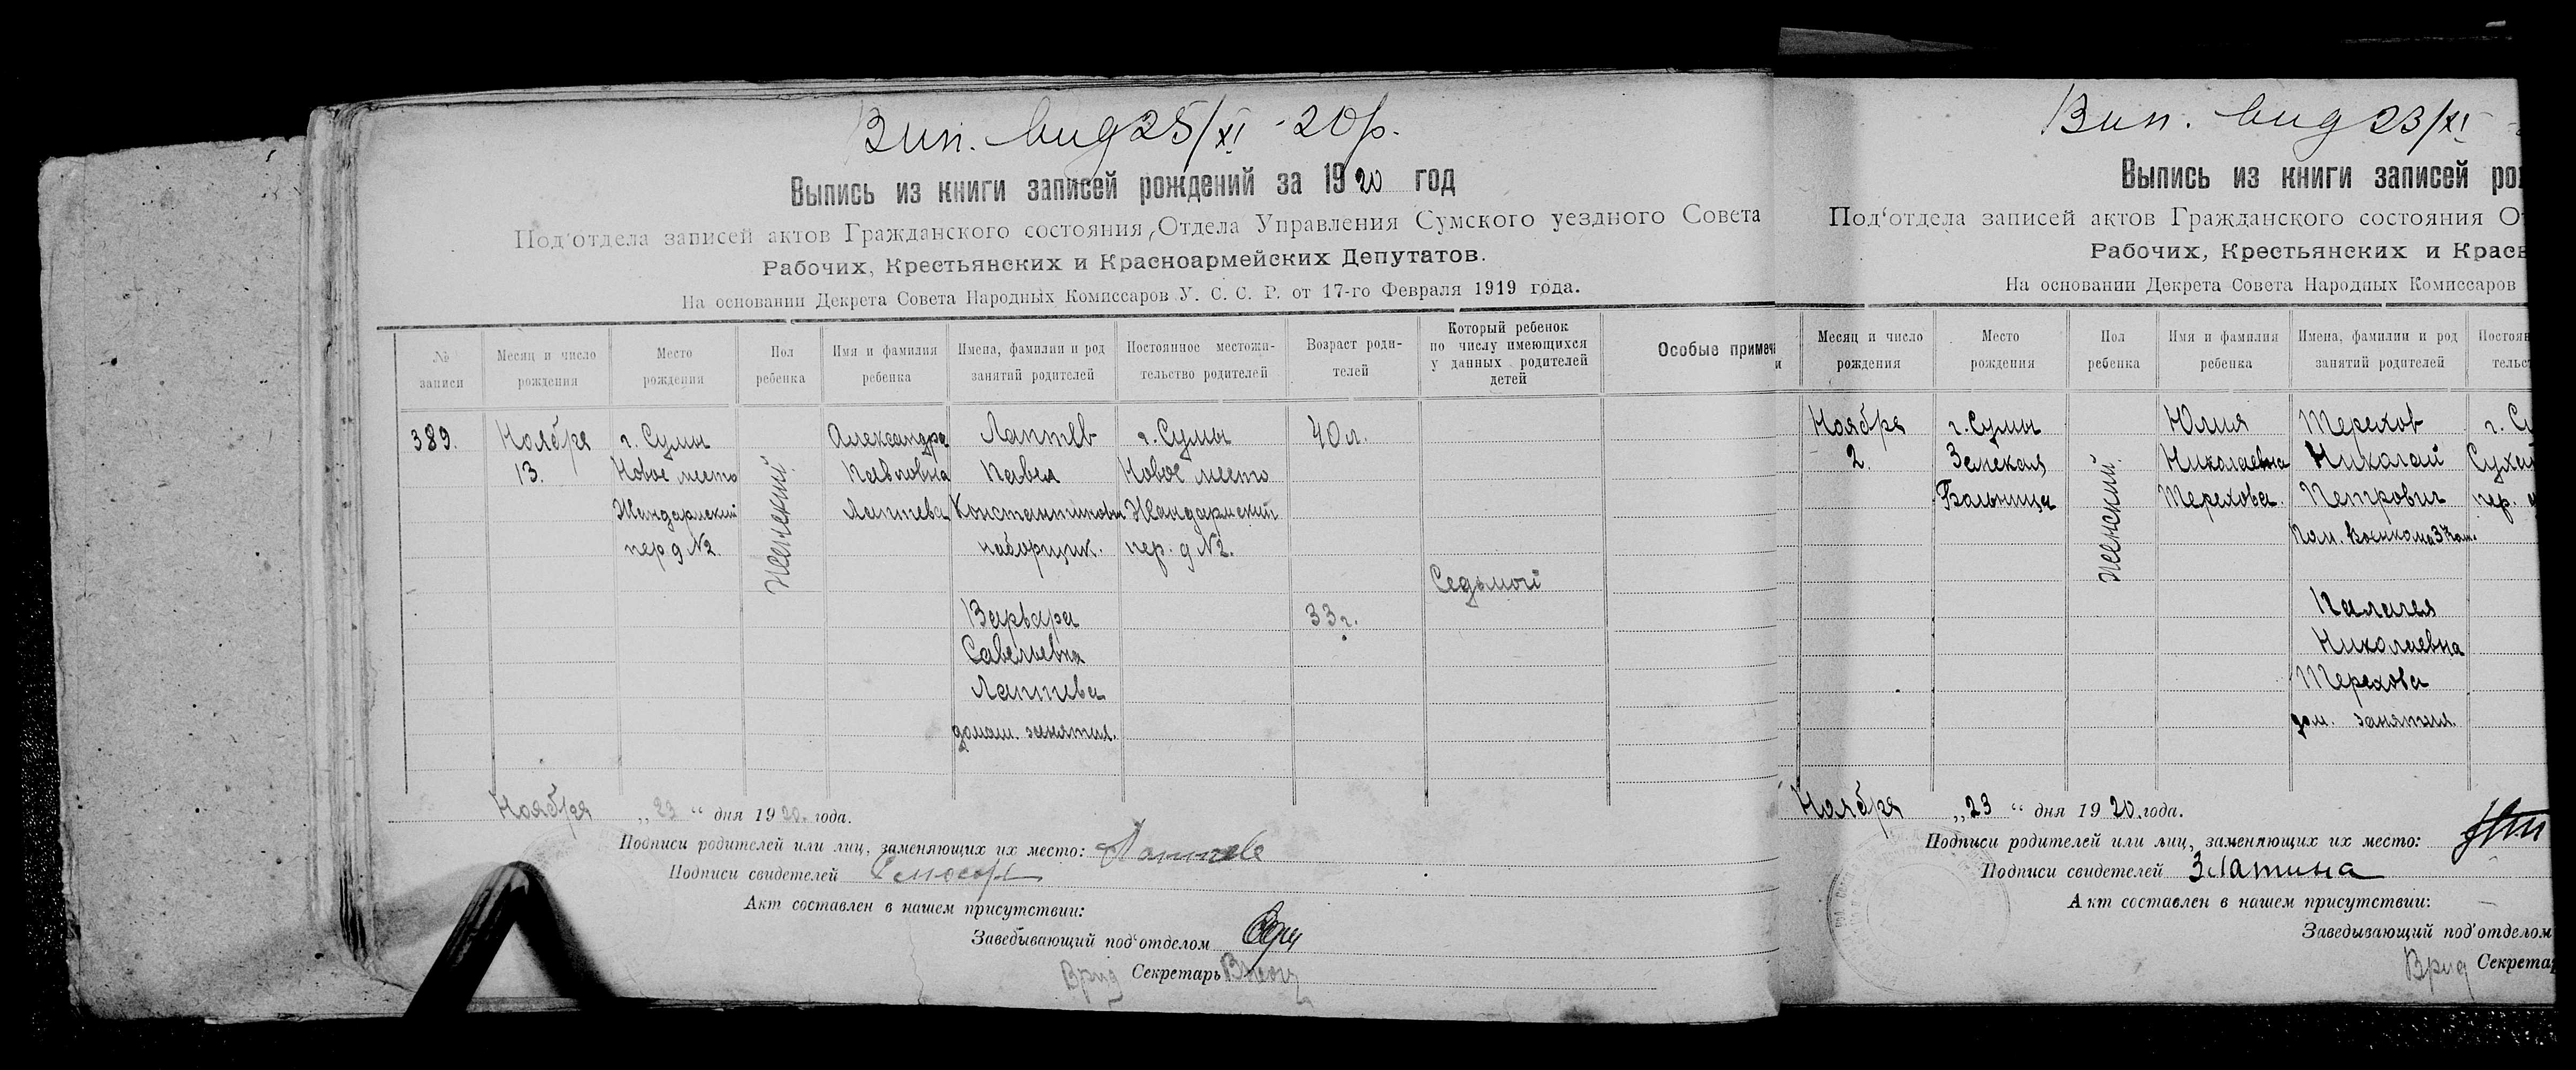 Вип. вид 25/XI - 20 р.
Выпись из книги записей рождений за 1920 год
Под'отдела записей актов Гражданского состояния, Отдела Управления Сумского уездного Совета
Рабочих, Крестьянских и Красноармейских Депутатов.
На основании Декрета Совета Народных Комиссаров У. С. С. Р. от 17-го Февраля 1919 года.
№ записи
Месяц и число рождения
Место рождения
Пол ребенка
Имя и фамилия ребенка
Имена, фамилии и род занятий родителей
Постоянное местожительство родителей
Возраст родителей
Который ребенок по числу имеющихся у данных родителей детей
Особые примеча
389.
Ноября
13.
г. Сумы
Новое место
Жандармский
пер. д №2.
Женский.
Александра
Павловна
Лаптева
Лаптев
Павел
Константинович
наборщик.
Варвара
Савельевна
Лаптева
домаш. занятия.
г. Сумы
Новое место
Жандармский
пер. д №2.
40 л.
33 г.
Седьмой
Ноября „23“ дня 1920. года.
Подписи родителей или лиц, заменяющих их место:
Подписи свидетелей
Акт составлен в нашем присутствии:
Заведывающий под'отделом
Врид Секретарь
Вип. вид 23/XI -
Выпись из книги записей рож
Под'отдела записей актов Гражданского состояния От
Рабочих, Крестьянских и Красн
На основании Декрета Совета Народных Комиссаров
и
Месяц и число рождения
Место рождения
Пол ребенка
Имя и фамилия ребенка
Имена, фамилии и род занятий родителей
Постоян
тельст
Ноября
2.
г. Сумы
Земская
Больница
Женский.
Юлия
Николаевна
Терехова.
Терехов
Николай
Петрович
Пом. Военкома
Палагея
Николаевна
Терехова
дом. занятия.
г. Су
пер.
Ноября „23“ дня 1920. года.
Подписи родителей или лиц, заменяющих их место:
Подписи свидетелей Златина
Акт составлен в нашем присутствии:
Заведывающий под'отделом
Врид Секретар